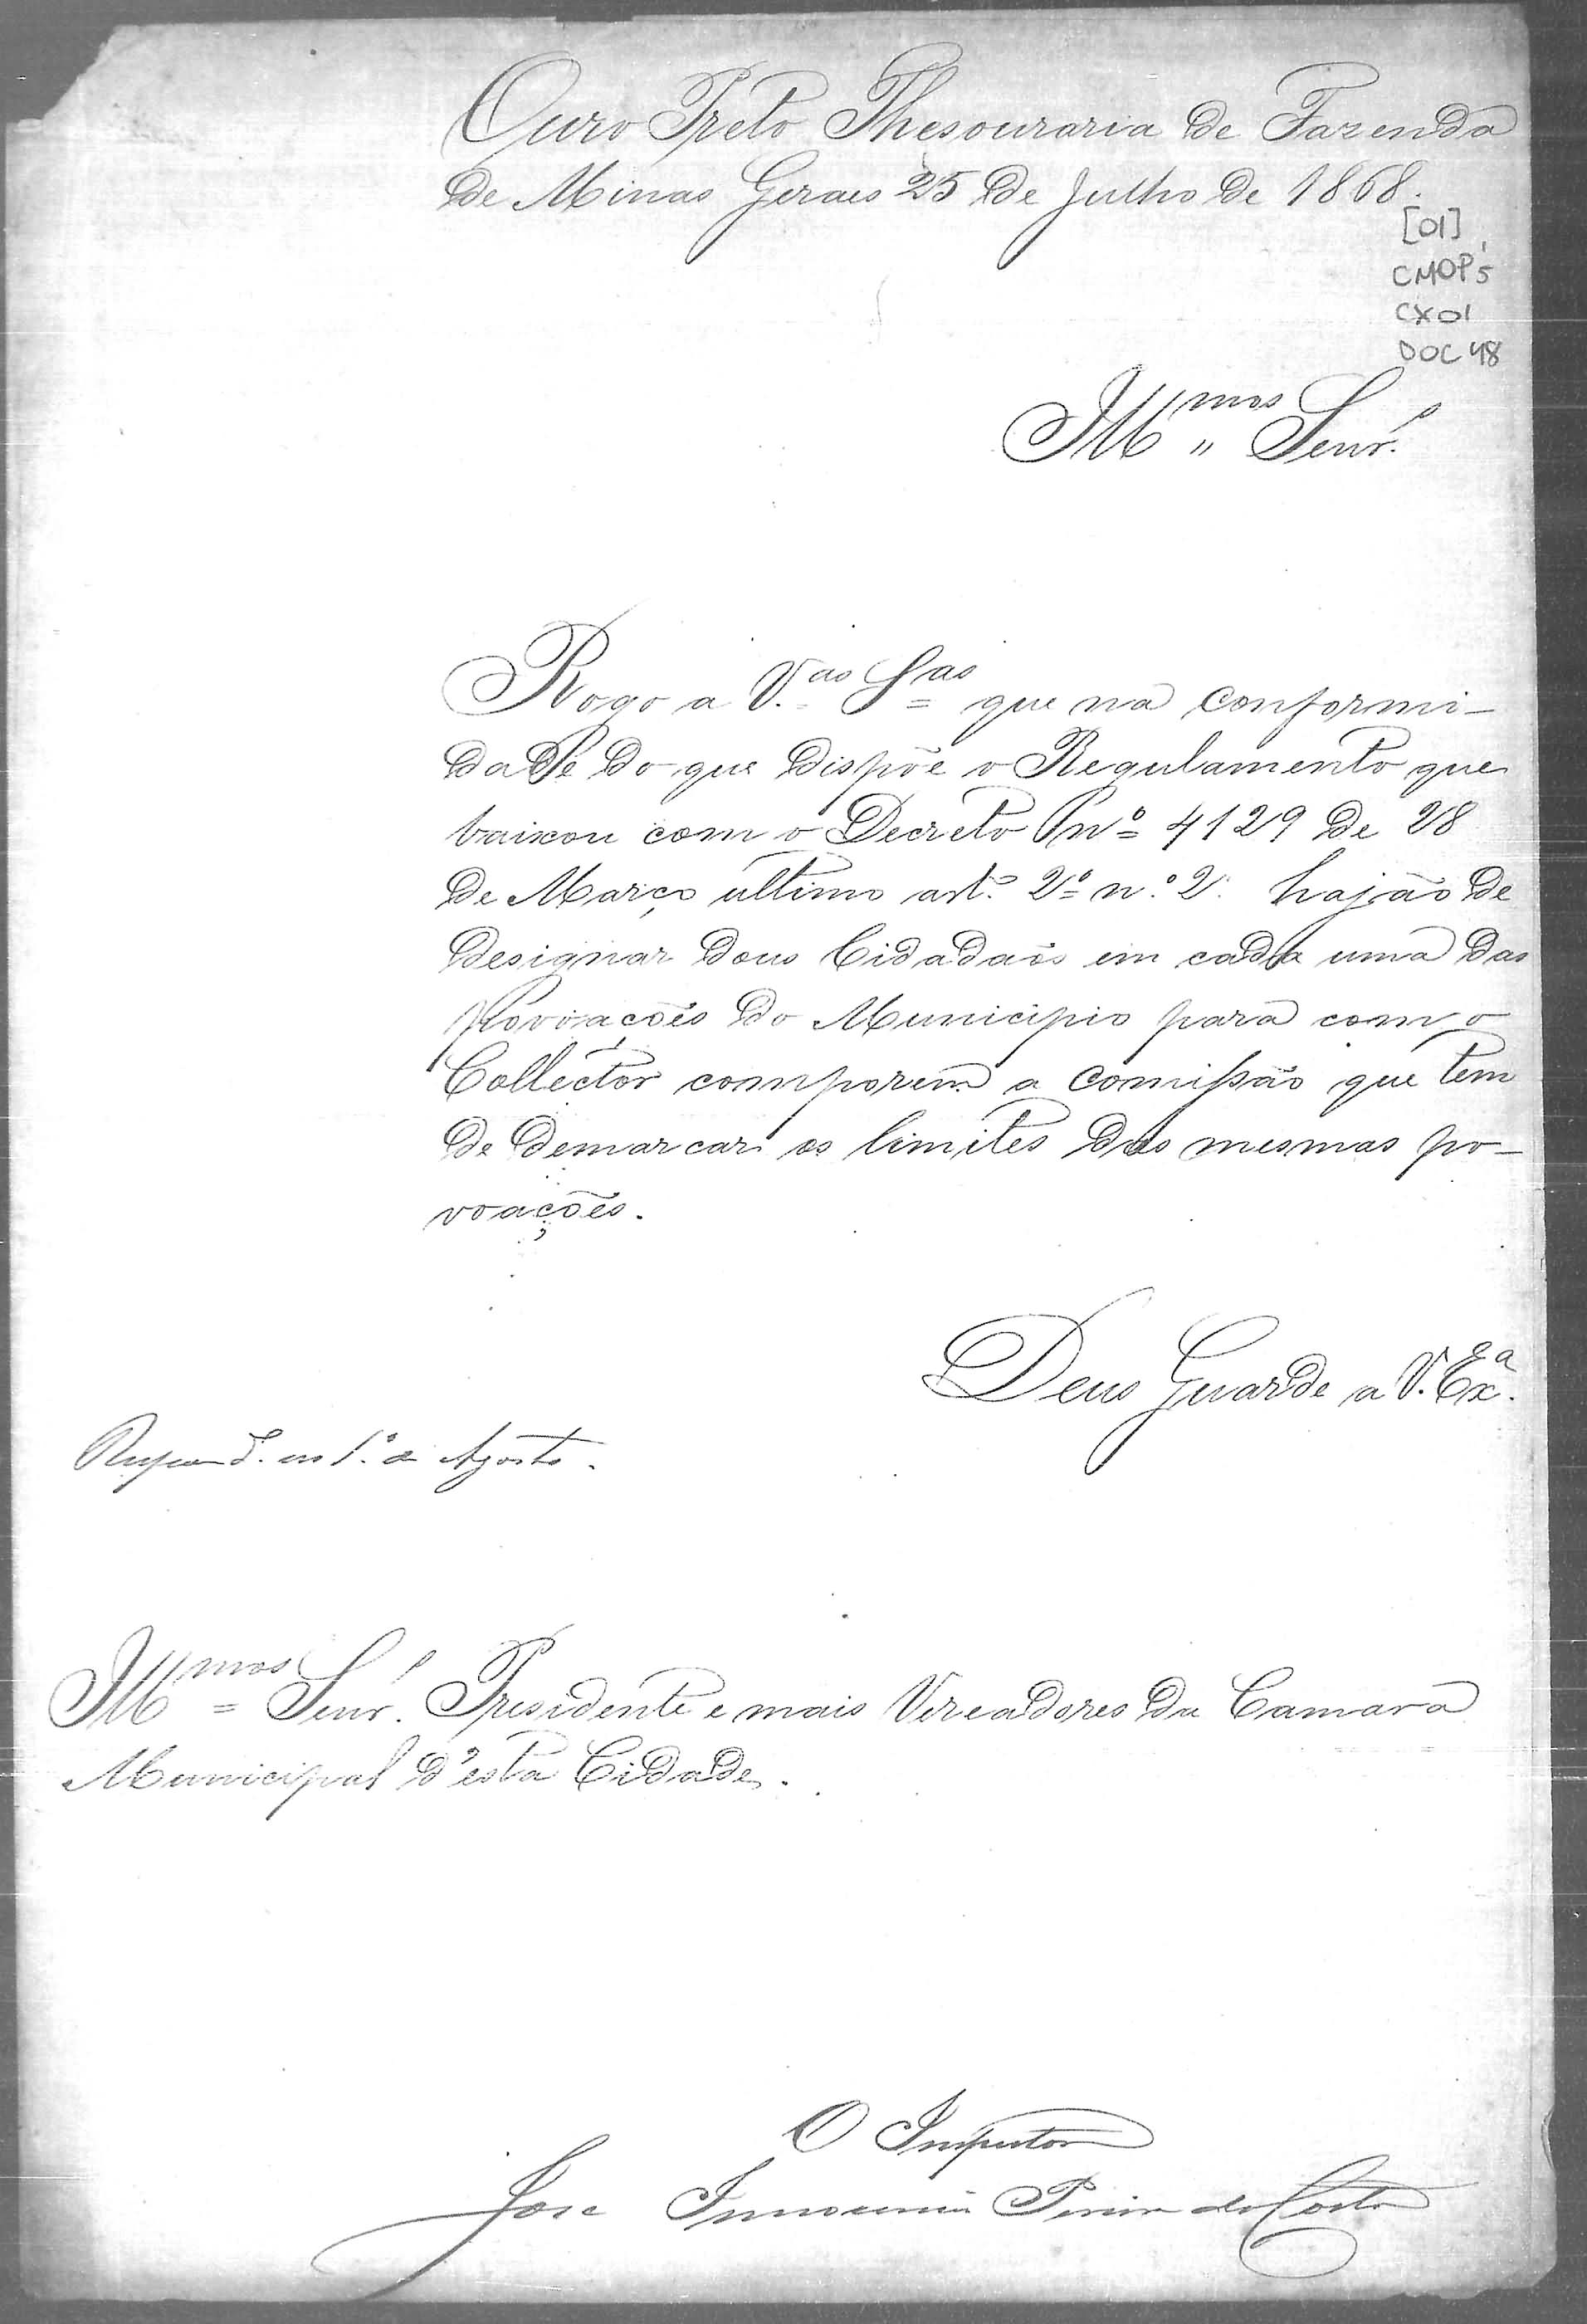 Ouro Preto Thesouraria de Fazenda
de Minas Geraes 25 de Julho de 1868.
[01]
CMOP 5
CX01
DOC 48
Ill.mos Senr.s
Rogo a V.as S.as que na conformi-
dade do que dispõe o Regulamento que
baixou com o Decreto nº 4129 de 28
de Março ultimo art.º 2º n.º 2. hajão de
designar dous Cidadaõs em cada uma das
povoaçoẽs do Municipio para com o
Collector comporem a comissão que tem
de demarcar os limites das mesmas po-
voaçoẽs.
Deus Guarde a V. Exª.
Respond. em 1.º de Agosto.
Ill.mos Senr.s Presidente e mais Vereadores da Camara
Municipal d'esta Cidade.
O Inspector
José Innocencio Pereira da Costa